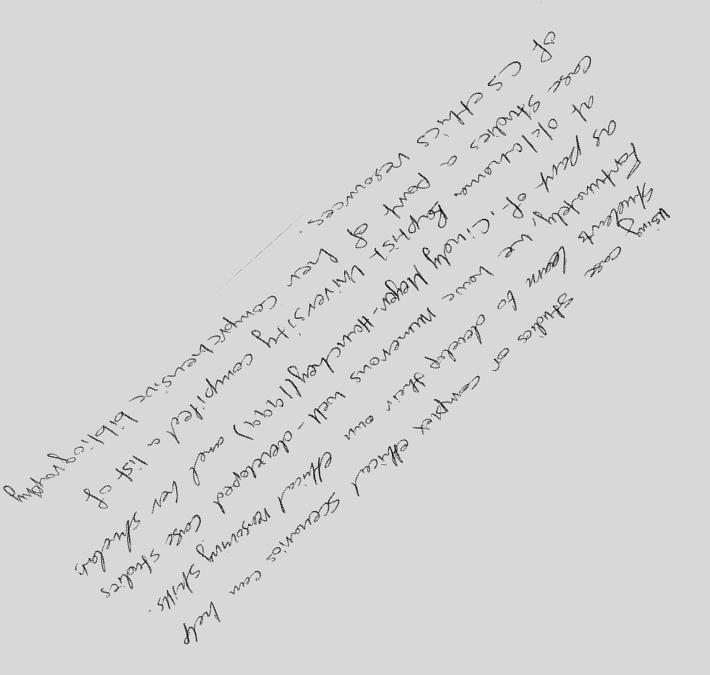 using case studies or complex ethical scenarios can help
students learn to develop their own ethical reasoning skills.
Fortunately, we have numerous well-developed case studies
as part of. Cindy Meyer-Hanchey(1999) and her students
at oklahoma Baptist University compiled a list of
case studies a part of her comprehensive bibliography
of CS ethics resources.